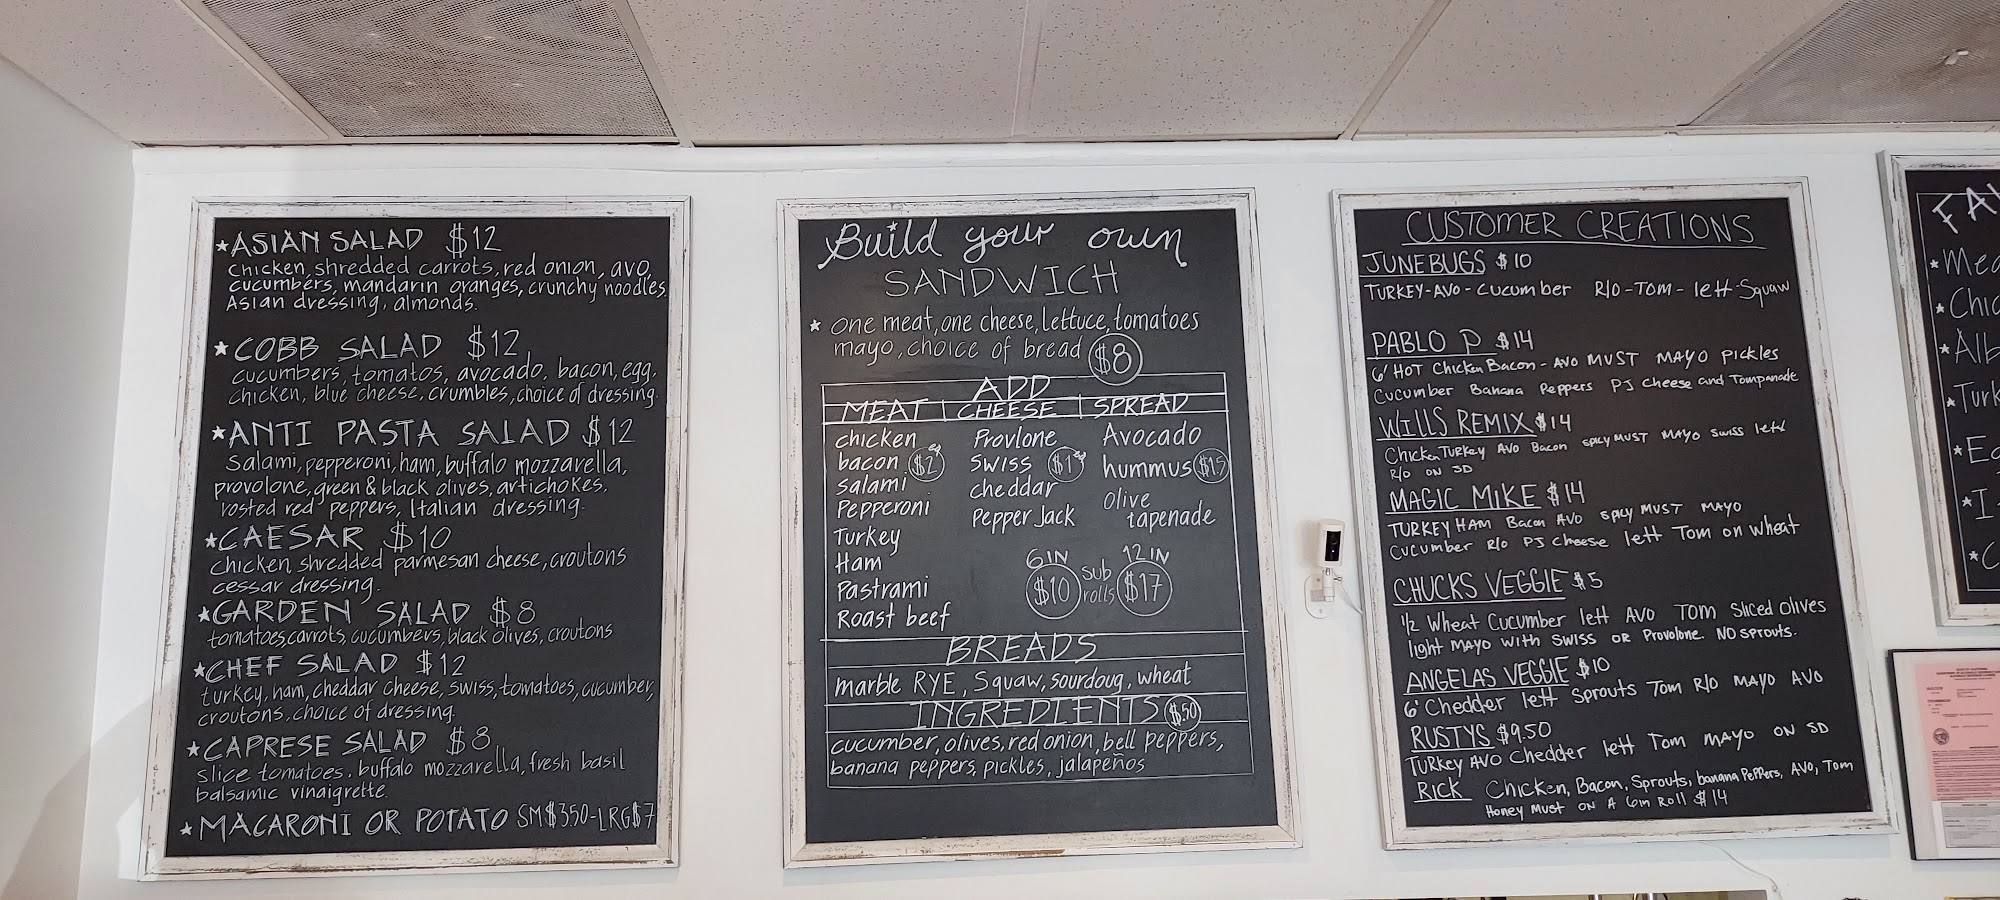 ★ASIAN SALAD $12
chicken, shredded carrots, red onion, avo,
cucumbers, mandarin oranges, crunchy noodles
Asian dressing, almonds.
★COBB SALAD $12
cucumbers, tomatos, avocado, bacon, egg.
chicken, blue cheese, crumbles, choice of dressing.
★ANTI PASTA SALAD $12
Salami, pepperoni, ham, buffalo mozzarella,
provolone, green & black olives, artichokes,
rosted red peppers, Italian dressing.
★CAESAR $10
chicken, shredded parmesan cheese, croutons
cessar dressing.
★GARDEN SALAD $8
tomatoes, carrots, cucumbers, black olives, croutons
★CHEF SALAD $12
turkey, ham, cheddar cheese, swiss, tomatoes, cucumber,
croutons, choice of dressing.
★CAPRESE SALAD $8
slice tomatoes, buffalo mozzarella, fresh basil
balsamic vinaigrette.
★MACARONI OR POTATO SM$350-LRG$7
Build your own
SANDWICH
★ one meat, one cheese, lettuce, tomatoes
mayo, choice of bread $8
ADD
MEAT | CHEESE | SPREAD
chicken Provlone Avocado
bacon $2 swiss $1 hummus
salami cheddar Olive
Pepperoni Pepper Jack tapenade
Turkey
Ham 6IN 12IN
Pastrami $10 sub rolls $17
Roast beef
BREADS
marble RYE, Squaw, sourdoug, wheat
INGREDIENTS $.50
cucumber, olives, red onion, bell peppers,
banana peppers, pickles, jalapeños
CUSTOMER CREATIONS
JUNEBUGS $10
TURKEY-AVO-Cucumber R/O-TOM-lett-Squaw
PABLO P $14
6' HOT Chicken Bacon-AVO MUST MAYO Pickles
Cucumber Banana Peppers PJ Cheese and Tompanade
WILLS REMIX $14
Chicken, TURKEY AVO Bacon SPICY MUST MAYO SWISS lett
R/O ON SD
MAGIC MIKE $14
TURKEY HAM Bacon AVO SPICY MUST MAYO
Cucumber R/O PJ Cheese lett Tom on wheat
CHUCKS VEGGIE $5
1/2 Wheat Cucumber lett AVO TOM Sliced olives
light MAYO WITH SWISS OR Provolone. NO sprouts.
ANGELAS VEGGIE $10
6' Chedder lett Sprouts Tom R/O MAYO AVO
RUSTYS $9.50
TURKEY AVO Chedder lett Tom MAYO ON SD
RICK Chicken, Bacon, Sprouts, banana Peppers, AVO, Tom
Honey Must ON A 6in Roll $14
★Mea
★Chic
★Alb
★Turk
★I
★C